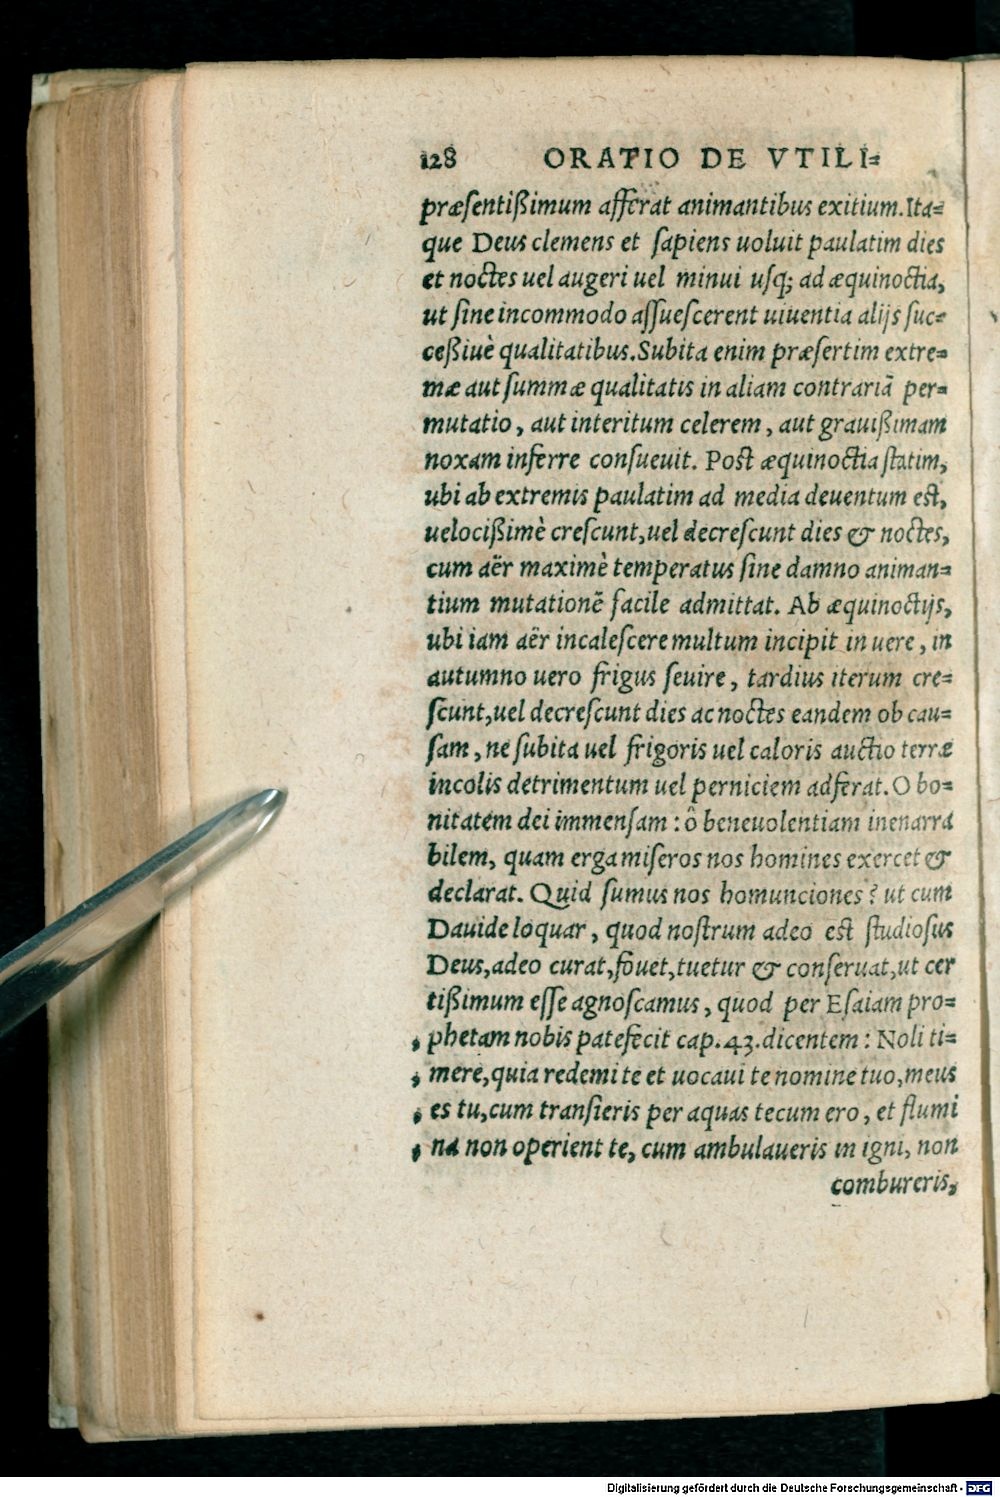 128 ORATIO DE VTILI=
præſentißimum afferat animantibus exitium. Ita=
que Deus clemens et ſapiens uoluit paulatim dies
et noctes uel augeri uel minui uſq; ad æquinoctia,
ut ſine incommodo aſſueſcerent uiuentia alijs ſuc=
ceßiuè qualitatibus. Subita enim præſertim extre=
mæ aut ſummæ qualitatis in aliam contrariā per=
mutatio, aut interitum celerem, aut grauißimam
noxam inferre conſueuit. Poſt æquinoctia ſtatim,
ubi ab extremis paulatim ad media deuentum eſt,
uelocißimè creſcunt, uel decreſcunt dies & noctes,
cum aër maximè temperatus ſine damno animan=
tium mutationē facile admittat. Ab æquinoctijs,
ubi iam aër incaleſcere multum incipit in uere, in
autumno uero frigus ſeuire, tardius iterum cre=
ſcunt, uel decreſcunt dies ac noctes eandem ob cau=
ſam, ne ſubita uel frigoris uel caloris auctio terræ
incolis detrimentum uel perniciem adferat. O bo=
nitatem dei immenſam : ô beneuolentiam inenarra
bilem, quam erga miſeros nos homines exercet &
declarat. Quid ſumus nos homunciones ? ut cum
Dauide loquar, quod noſtrum adeo eſt ſtudioſus
Deus, adeo curat, fouet, tuetur & conſeruat, ut cer
tißimum eſſe agnoſcamus, quod per Eſaiam pro=
, phetam nobis patefecit cap. 43. dicentem : Noli ti=
, mere, quia redemi te et uocaui te nomine tuo, meus
, es tu, cum tranſieris per aquas tecum ero, et flumi
, na non operient te, cum ambulaueris in igni, non
combureris,
Digitalisierung gefördert durch die Deutsche Forschungsgemeinschaft - DFG